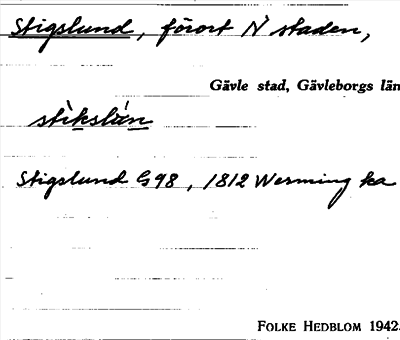 Stigslund, förort N staden,
Gävle stad, Gävleborgs län
stìkslún
Stigslund G98, 1812 Werming ka
FOLKE HEDBLOM 1942.